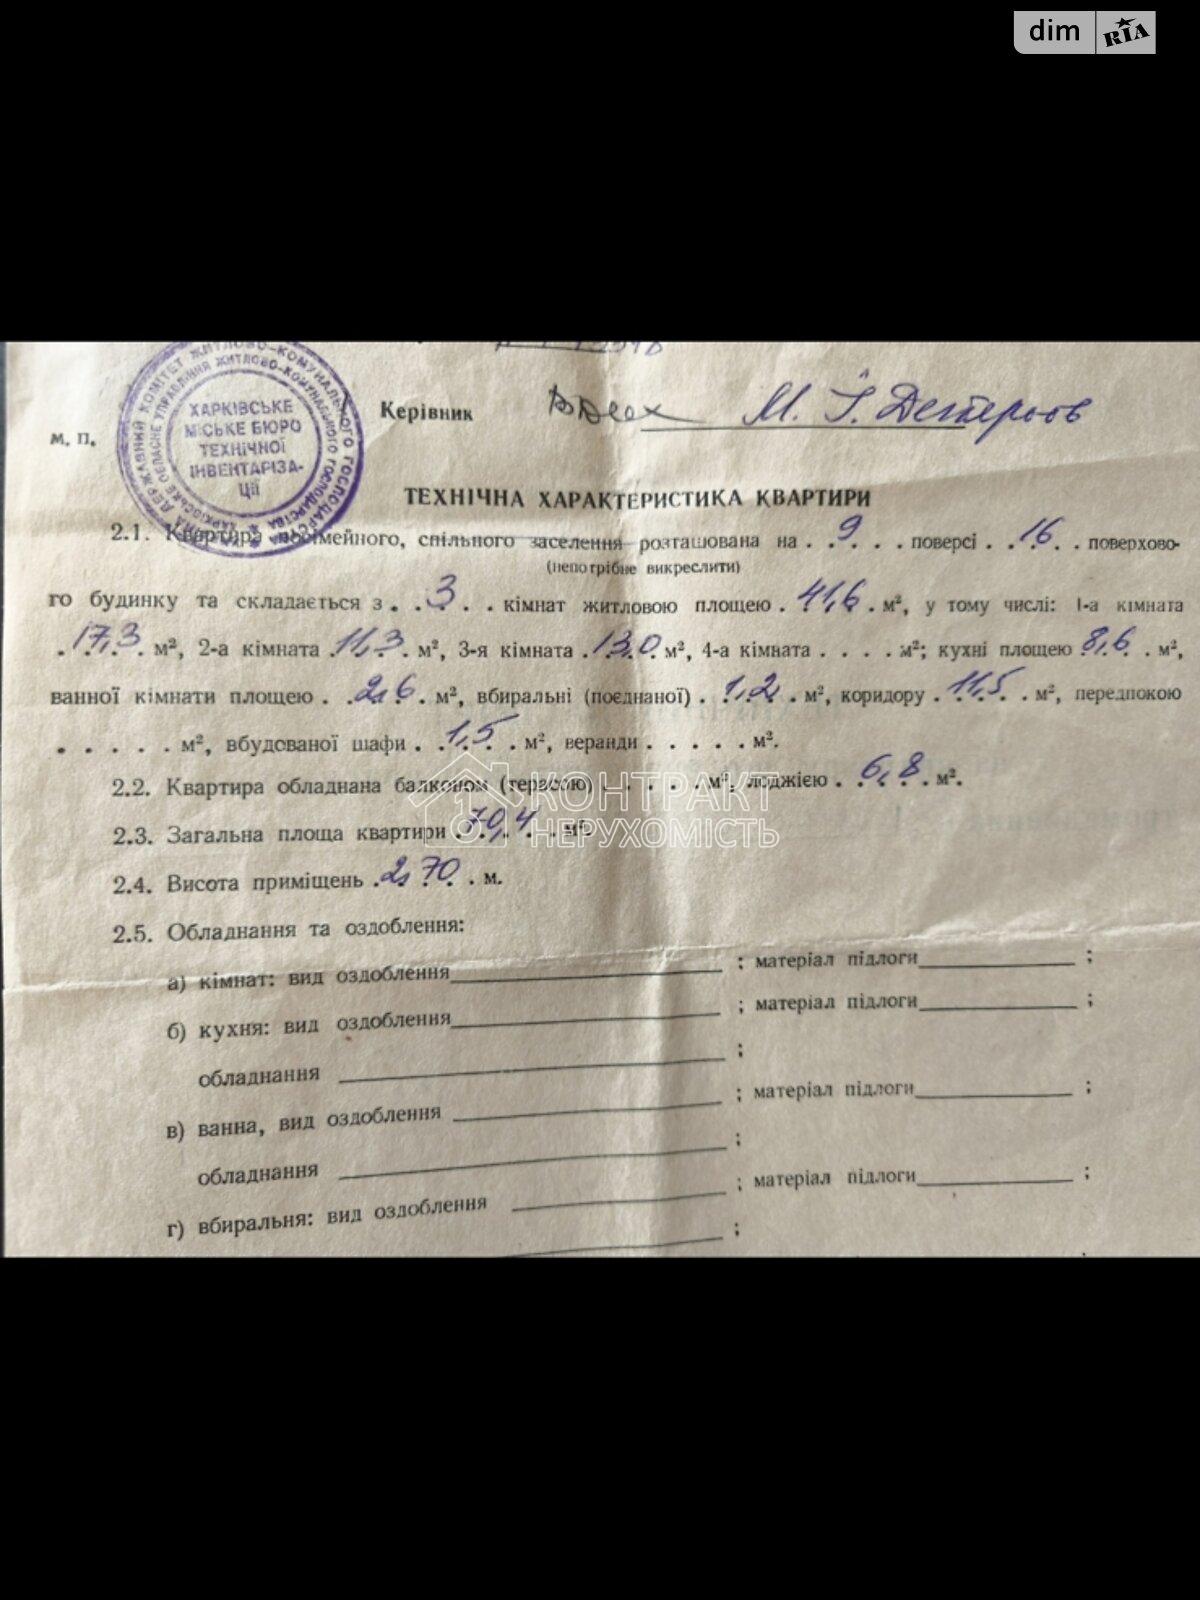 dim RIA
Керівник М. І. Дегтярьов
м. п.
ХАРКІВСЬКЕ
МІСЬКЕ БЮРО
ТЕХНІЧНОЇ
ІНВЕНТАРІЗА-
ЦІЇ
ТЕХНІЧНА ХАРАКТЕРИСТИКА КВАРТИРИ
2.1. Квартира посімейного, спільного заселення розташована на . . 9 . . . поверсі . . 16 . . поверхово-
(непотрібне викреслити)
го будинку та складається з . . 3 . . кімнат житловою площею . 41,6 . м², у тому числі: 1-а кімната
. 17,3 . м², 2-а кімната . 11,3 . м², 3-я кімната . 13,0 м², 4-а кімната . . . . м²; кухні площею 8,6 . м²,
ванної кімнати площею . . 2,6 . м², вбиральні (поєднаної) . 1,2 . . м², коридору . 11,5 . . м², передпокою
. . . . . м², вбудованої шафи . . 1,5 . . м², веранди . . . . . м².
2.2. Квартира обладнана балконом (терасою) . . . . м², лоджією . 6,8 . м².
КОНТРАКТ
НЕРУХОМІСТЬ
2.3. Загальна площа квартири . 70,4 . . м²
2.4. Висота приміщень . 2,70 . . м.
2.5. Обладнання та оздоблення:
а) кімнат: вид оздоблення ; матеріал підлоги ;
б) кухня: вид оздоблення ; матеріал підлоги ;
обладнання ;
в) ванна, вид оздоблення ; матеріал підлоги ;
обладнання ;
г) вбиральня: вид оздоблення ; матеріал підлоги ;
;